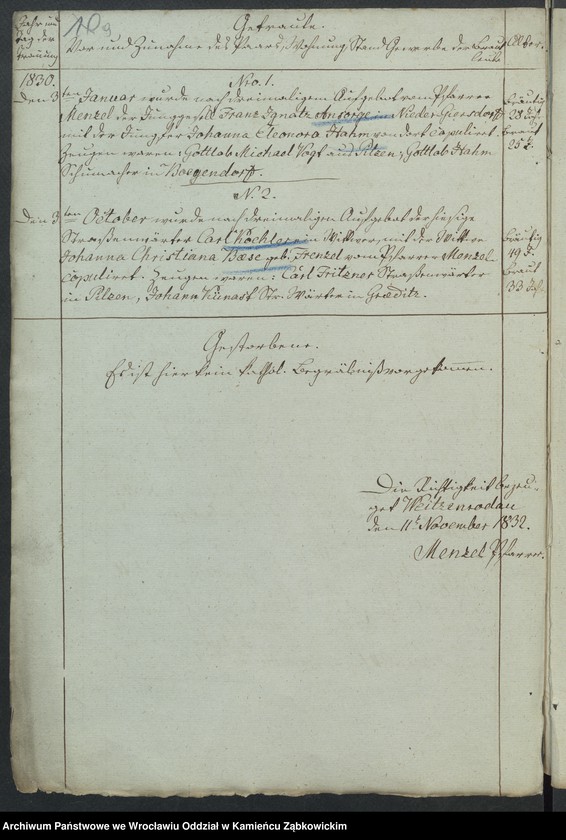 109
Getraute.
Jahr und
tag der
trauung
Vor und Zunahme des Paars, Wohnung, Stand Gewerbe der Braut
leute
Alter.
1830.
No. 1.
den 3ten Januar wurde nach dreimaligem Aufgebot vom Pfarrer
Menzel der Junggesell Franz Ignatz Ansorge in Nieder Giersdorff
mit der Jungfer Johanna Eleonora Hahm von dort Copuliret.
Zeugen waren: Gottlob Michael Vogt aus Pilzen, Gottlob Hahm
Schumacher in Boegendorff.
Bräutig
28 Jah.
Braut
25 J.
N. 2.
Den 3ten October wurde nach dreimaligen Aufgebot der hiesige
Straßenwärter Carl Koehler ein Wittwer, mit der Wittwe
Johanna Christiana Baese geb. Frenzel vom Pfarrer Menzel
copuliret. Zeugen waren: Carl Fritzner Straßenwärter
in Pilzen, Johann Kunast Str. Wärter in Graeditz.
Bräutig
49 J.
Braut
33 Jah.
Gestorbene.
Es ist hier kein kathol. Begräbniß vorgekommen.
Die Richtigkeit bezeu-
get Weitzenrodau
den 11t November 1832.
Menzel Pfarrer.
Archiwum Państwowe we Wrocławiu Oddział w Kamieńcu Ząbkowickim